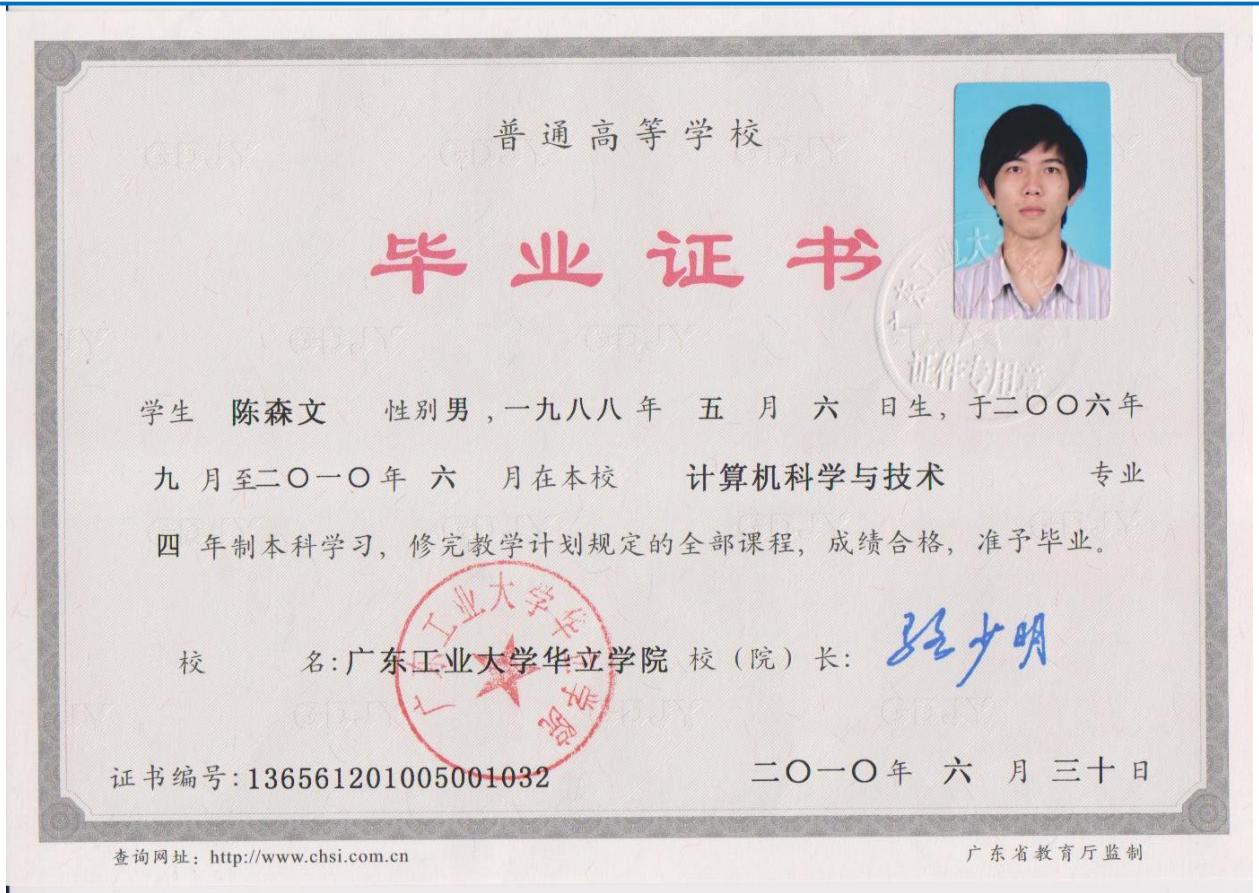 普通高等学校
毕业证书
学生 陈森文 性别男,一九八八年 五 月 六 日生，于二〇〇六年
九 月至二〇一〇年 六 月在本校 计算机科学与技术 专业
四 年制本科学习，修完教学计划规定的全部课程，成绩合格，准予毕业。
校 名:广东工业大学华立学院 校（院）长:
广东工业大学华立学院
证件专用章
证书编号:136561201005001032 二〇一〇年 六 月 三十 日
查询网址：http://www.chsi.com.cn 广东省教育厅监制